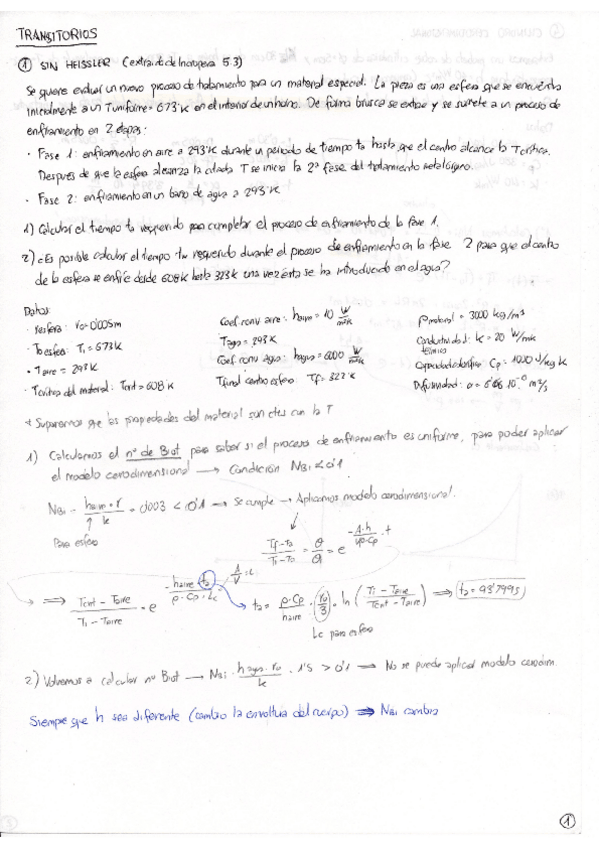 TRANSITORIOS
① SIN HEISSLER (extraido de Incropera 5.3)
Se quiere evaluar un nuevo proceso de tratamiento para un material especial. La pieza es una esfera que se encuentra
inicialmente a un T uniforme = 673 K en el interior de un horno. De forma brusca se extrae y se somete a un proceso de
enfriamiento en 2 etapas:
· Fase 1: enfriamiento en aire a 293 K durante un periodo de tiempo ta hasta que el centro alcance la Tcritica.
Despues de que la esfera alcanza la citada T se inicia la 2ª fase del tratamiento metalúrgico.
· Fase 2: enfriamiento en un baño de agua a 293 K
1) Calcular el tiempo ta requerido para completar el proceso de enfriamiento de la fase 1.
2) ¿Es posible calcular el tiempo tw requerido durante el proceso de enfriamiento en la fase 2 para que el centro
de la esfera se enfríe desde 608 K hasta 323 K una vez ésta se ha introducido en el agua?
Datos:
· r esfera: r0 = 0'005m
· T0 esfera: Ti = 673 K
· T aire = 293 K
· Tcritica del material: Tcrit = 608 K
Coef. conv aire: haire = 10 W/m²K
Tagua = 293 K
Coef. conv agua: hagua = 6000 W/m²K
Tfinal centro esfera: Tf = 323 K
ρ material = 3000 kg/m³
Conductividad térmica: k = 20 W/mK
Capacidad calorífica: Cp = 1000 J/kg K
Difusividad: α = 6'66·10⁻⁶ m²/s
* Suponemos que las propiedades del material son ctes con la T
1) Calculamos el nº de Biot para saber si el proceso de enfriamiento es uniforme, para poder aplicar
el modelo cerodimensional → Condición NBi < 0'1
NBi = haire · r / k = 0'003 < 0'1 → Se cumple → Aplicamos modelo cerodimensional.
Para esfera
Tf - T∞ / Ti - T∞ = θ / θ = e^(-A·h / Vρ·Cp · t)
⟹ Tcrit - Taire / Ti - Taire = e^(-haire · ta / ρ · Cp · Lc)
ta = ρ · Cp / haire · r0 / 3 · ln (Ti - Taire / Tcrit - Taire) ⟹ ta = 93'799s
Lc para esfera
2) Volvemos a calcular nº Biot → NBi = hagua · r0 / k = 1'5 > 0'1 → No se puede aplicar modelo cerodim.
Siempre que h sea diferente (cambio la envoltura del cuerpo) ⟹ NBi cambia
①